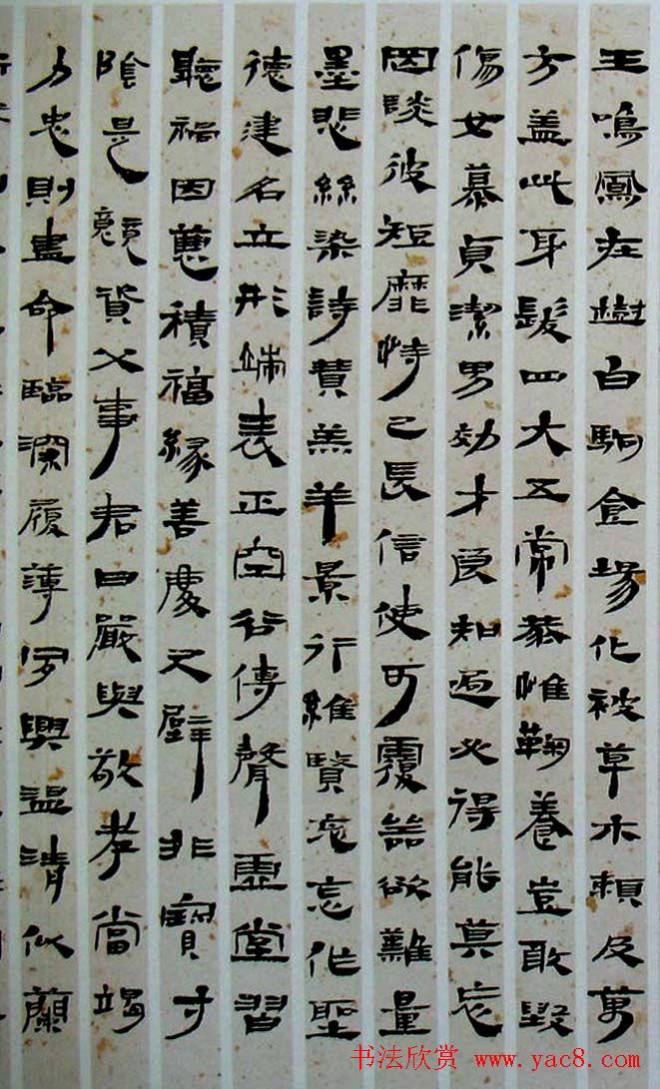 王鳴鳳在樹白駒食場化被草木賴及萬
方蓋此身髮四大五常恭惟鞠養豈敢毀
傷女慕貞潔男効才良知過必得能莫忘
罔談彼短靡恃己長信使可覆器欲難量
墨悲絲染詩贊羔羊景行維賢克念作聖
德建名立形端表正空谷傳聲虛堂習
聽禍因惡積福緣善慶尺璧非寶寸
陰是競資父事君曰嚴與敬孝當竭
力忠則盡命臨深履薄夙興溫清似蘭
书法欣赏 www.yac8.com